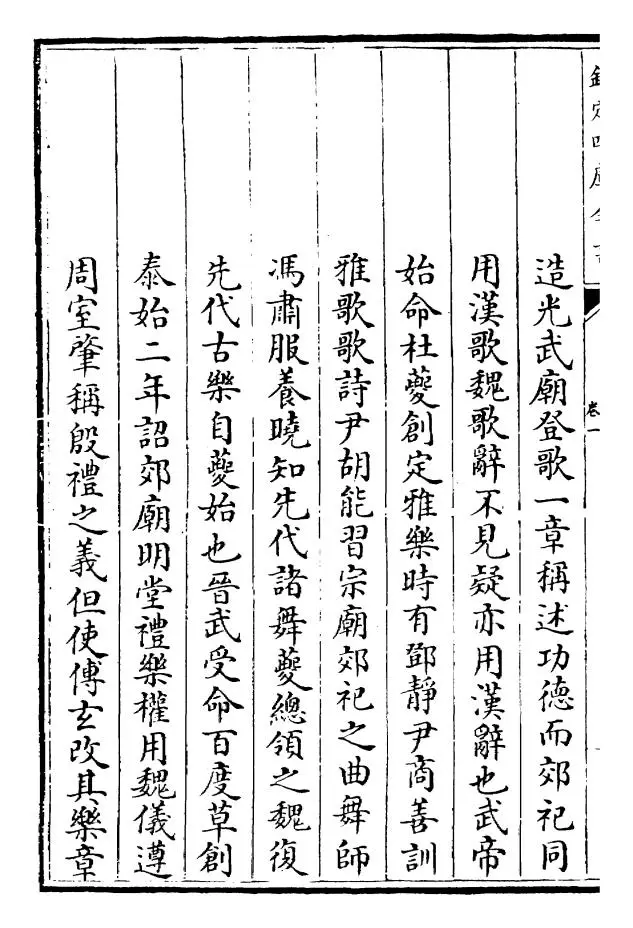 欽定四庫全書
卷一
造光武廟登歌一章稱述功德而郊祀同
用漢歌魏歌辭不見疑亦用漢辭也武帝
始命杜夔創定雅樂時有鄧靜尹商善訓
雅歌歌詩尹胡能習宗廟郊祀之曲舞師
馮肅服養曉知先代諸舞夔總領之魏復
先代古樂自夔始也晉武受命百度草創
泰始二年詔郊廟明堂禮樂權用魏儀遵
周室肇稱殷禮之義但使傅玄改其樂章